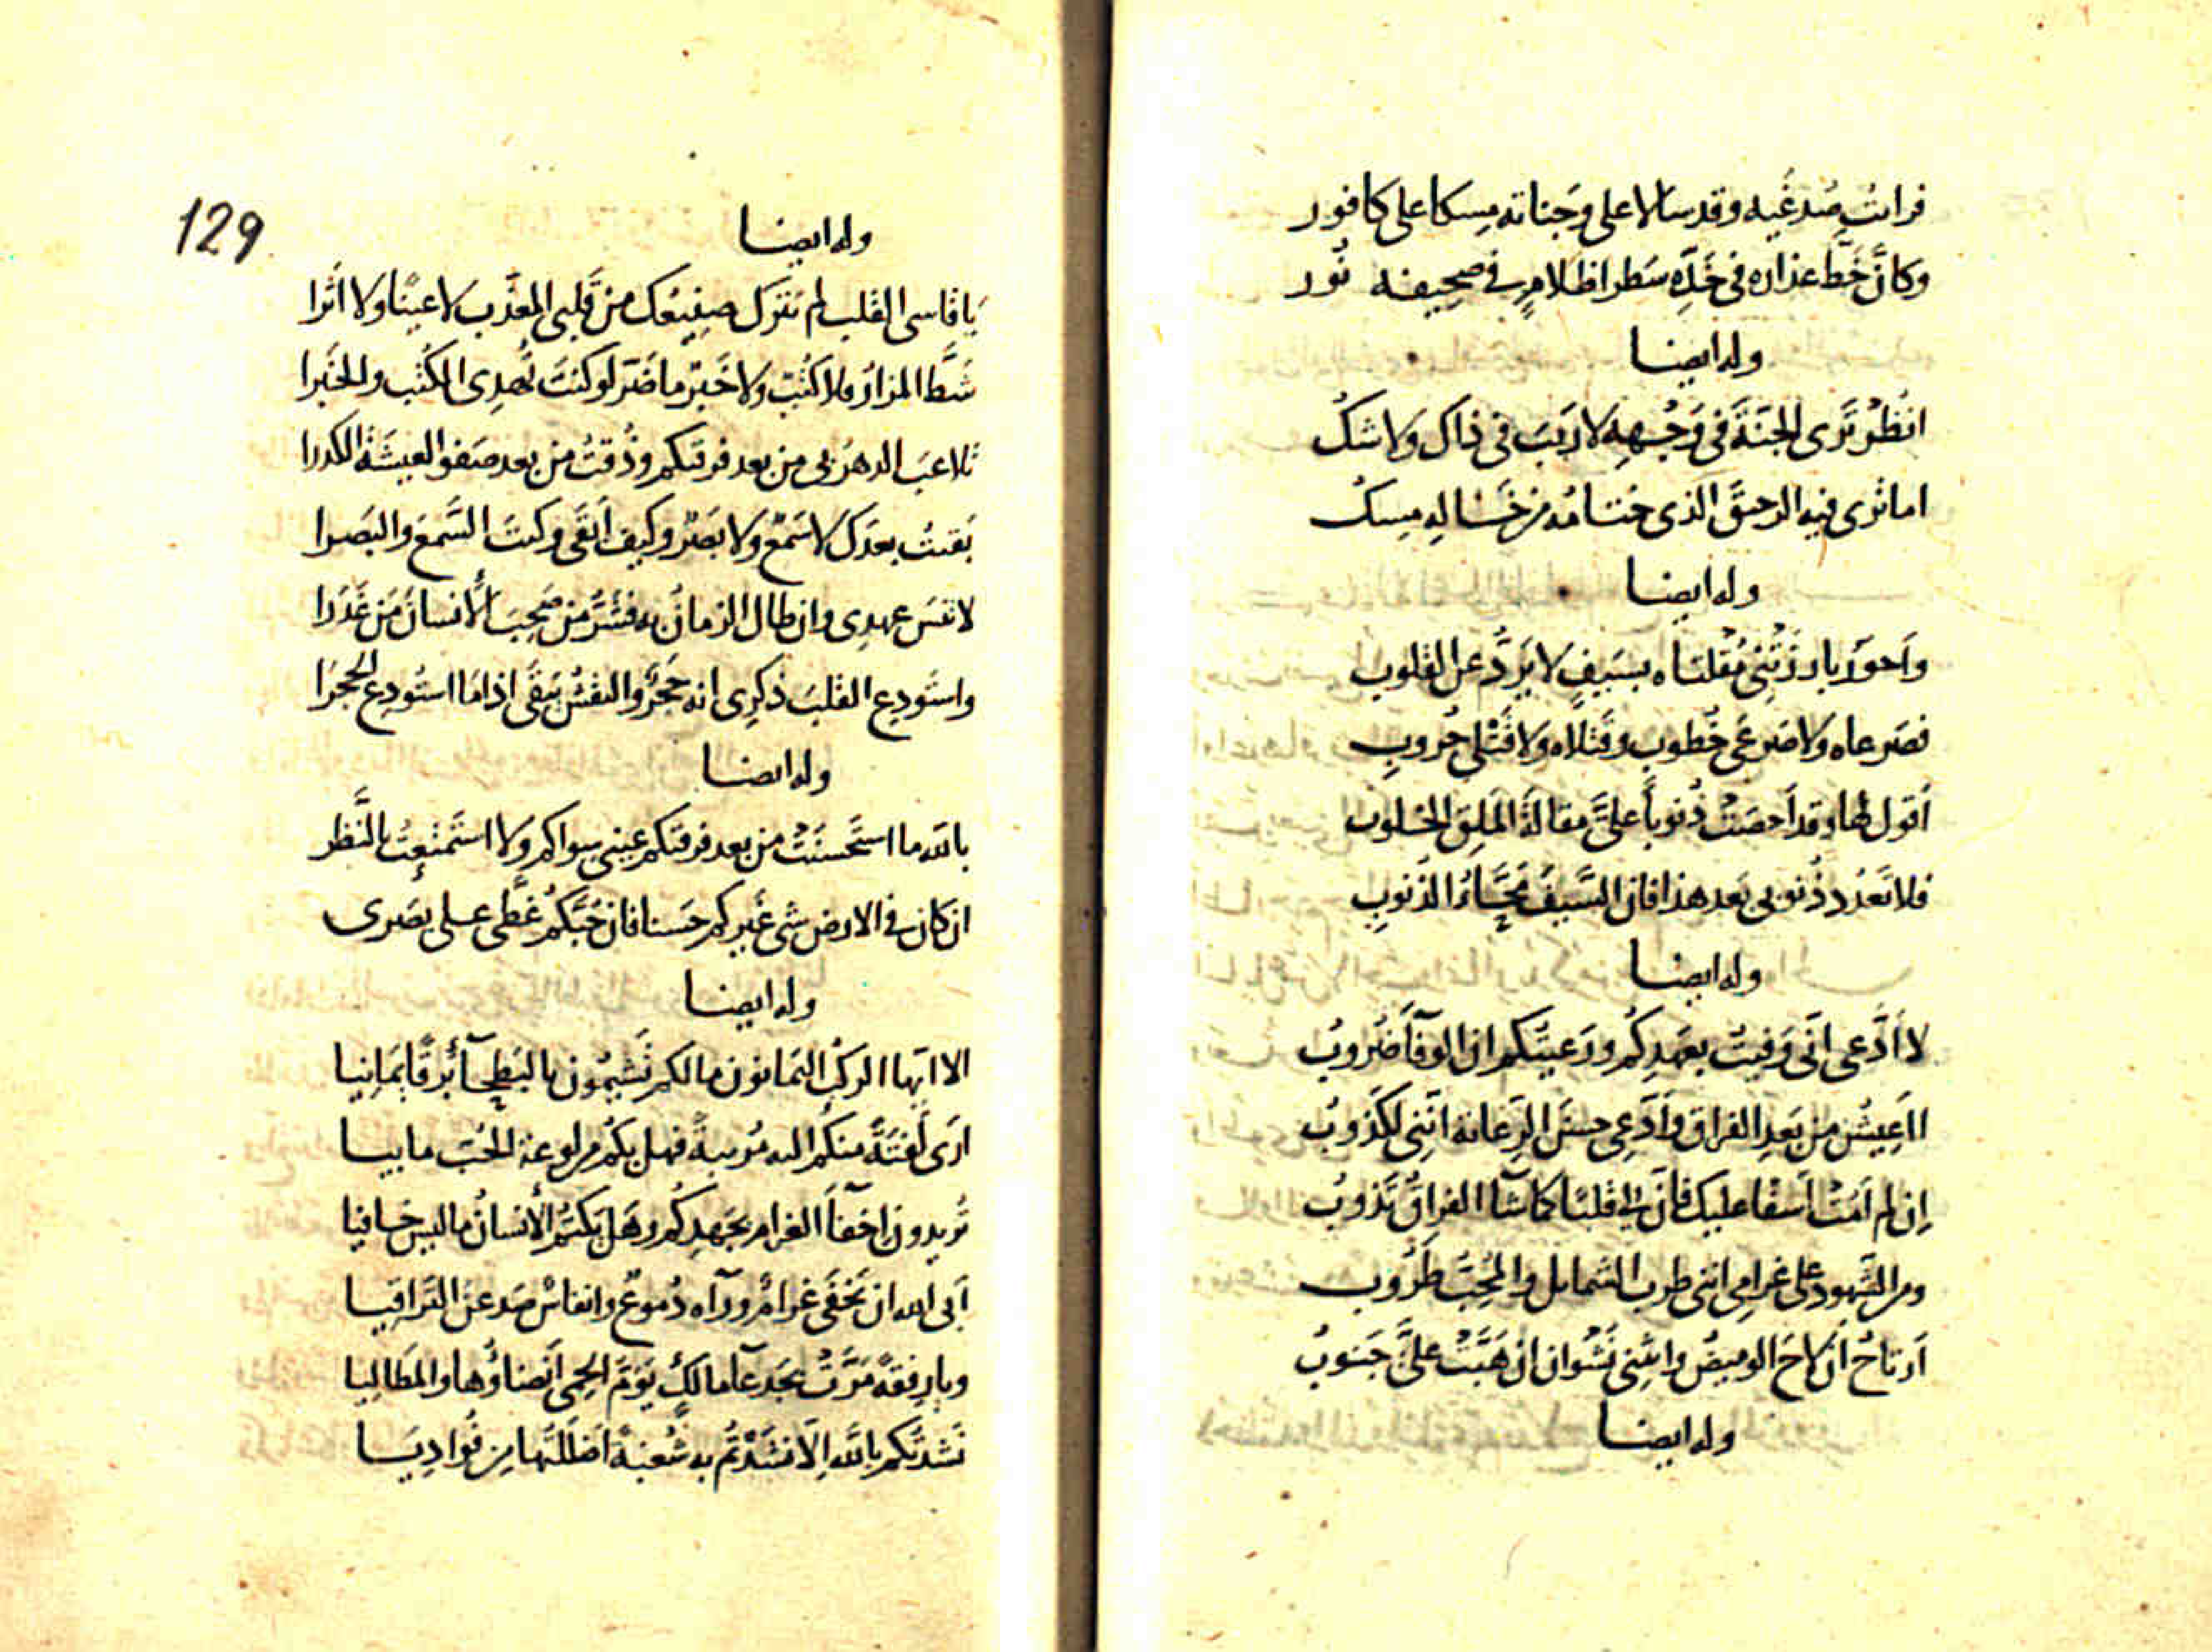 فرايت صدغيه وقد سالا على وجناته مسكا على كافور
وكانّ خطّ عذاره فى خدّه سطر اظلام فى صحيفه نور
وله ايضا
انظر ترى الجنّة فى وجهه لا ريب فى ذاك ولا شك
اما ترى فيه الرحيق الذى ختامه من خاله مسك
وله ايضا
واحور بارزتنى مقلتاه بسيف لا يردّ عن القلوب
فصرعاه ولا صرعى خطوب وقتلاه ولا قتلى حروب
اقول لها وقد احصت ذنوباً علىّ مقالة الملق الخلوب
فلا تعدد ذنوبى بعد هذا فان السّيف محّاء الذنوب
وله ايضا
لا ادّعى انّى وفيت بعهدكم ورعيتكم ان الوفآ ضروب
ااعيش من بعد الفراق وادّعى حسن الرعاية انّنى لكذوب
ان لم امت اسفا عليك فانّ لى قلبا كما شآ الفراق يذوب
ومن الشهود على غرامى اننى طرب الشمايل والمحبّ طروب
ارتاح ان لاح الوميض وانثنى نشوان ان هبّت علىّ جنوب
وله ايضا
129
وله ايضا
يا قاسى القلب لم تترك صنيعك من قلبى المعذّب لا عينا ولا اثرا
شطّ المزار فلا كتب ولا خبر ما ضرّ لو كنت تهدى الكتب والخبرا
تلاعب الدهر بى من بعد فرقتكم وذقت من بعد صفو العيشة الكدرا
بقيت بعدك لا سمع ولا بصر وكيف ابقى وكنت السّمع والبصرا
لا تنس عهدى وان طال الزمان به فشرّ من صحب الأنسان من غدرا
واستودع القلب ذكرى انه حجر والنقش يبقى اذا ما استودع الحجرا
وله ايضا
بالله ما استحسنت من بعد فرقتكم عينى سواكم ولا استمتعت بالنّظر
ان كان فى الارض شى غيركم حسنا فان حبّكم غطّى على بصرى
وله ايضا
الا ايّها الركب اليمانون مالكم تشيمون بالبطحآ برقا يمانيا
ارى لفتة منكم اليه مريبة فهل بكم من لوعة الحبّ ما بيا
تريدون اخفآ الغرام بجهدكم وهل يكتم الأنسان ما ليس خافيا
ابى الله ان تخفى غرام ورآه دموع وانفاس صدعن التراقيا
ويا رفقة مرّت بجرعآ مالك يؤمّ الحمى انضاؤها والمطاليا
نشدتكم بالله الّا نشدتم به شعبة اضللتها من فؤاديا